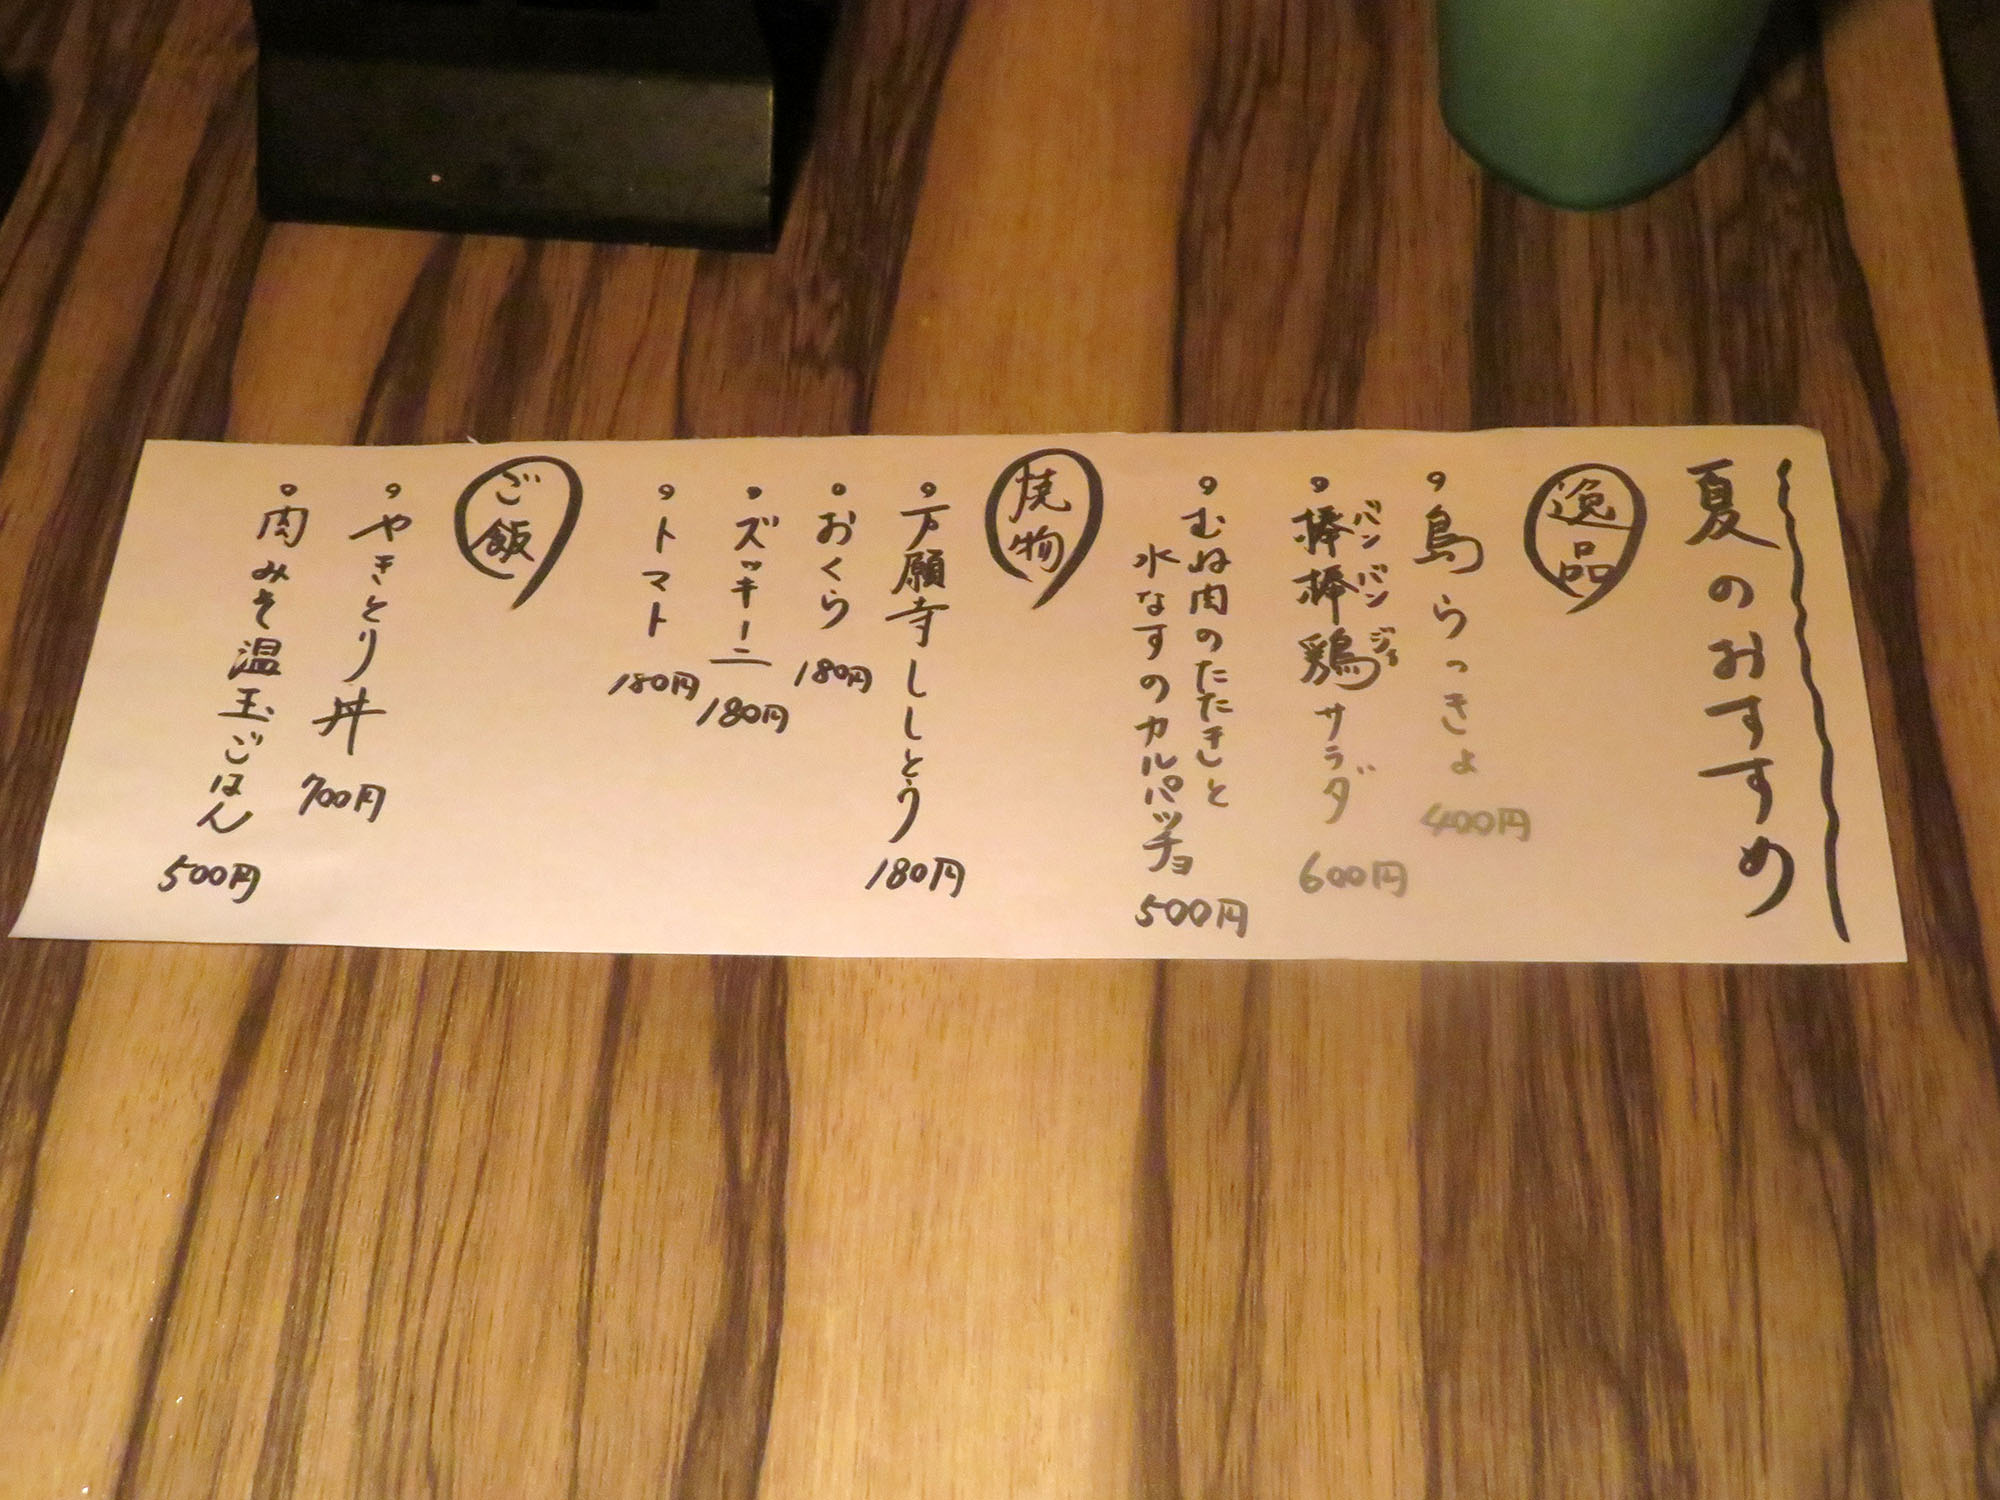 夏のおすすめ
逸品
島らっきょ 400円
バンバンジー
棒棒鶏サラダ 600円
むね肉のたたきと
水なすのカルパッチョ 500円
焼物
万願寺ししとう 180円
おくら 180円
ズッキーニ 180円
トマト 180円
ご飯
やきとり丼 700円
肉みそ温玉ごはん 500円